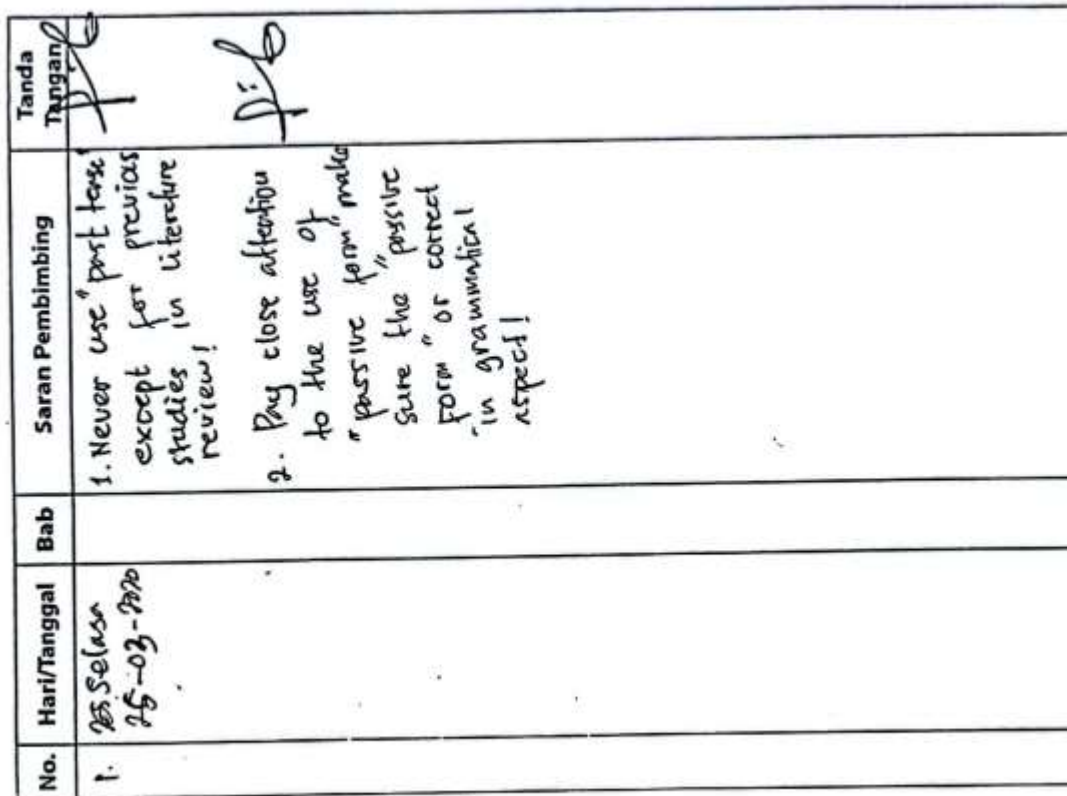 No. Hari/Tanggal Bab Saran Pembimbing Tanda Tangan
1. Selasa
25-03-2020
1. Never use "past tense"
except for previous
studies in literature
review!
2. Pay close attention
to the use of
"passive form" make
sure the "passive
form" or correct
in grammatical
aspect!